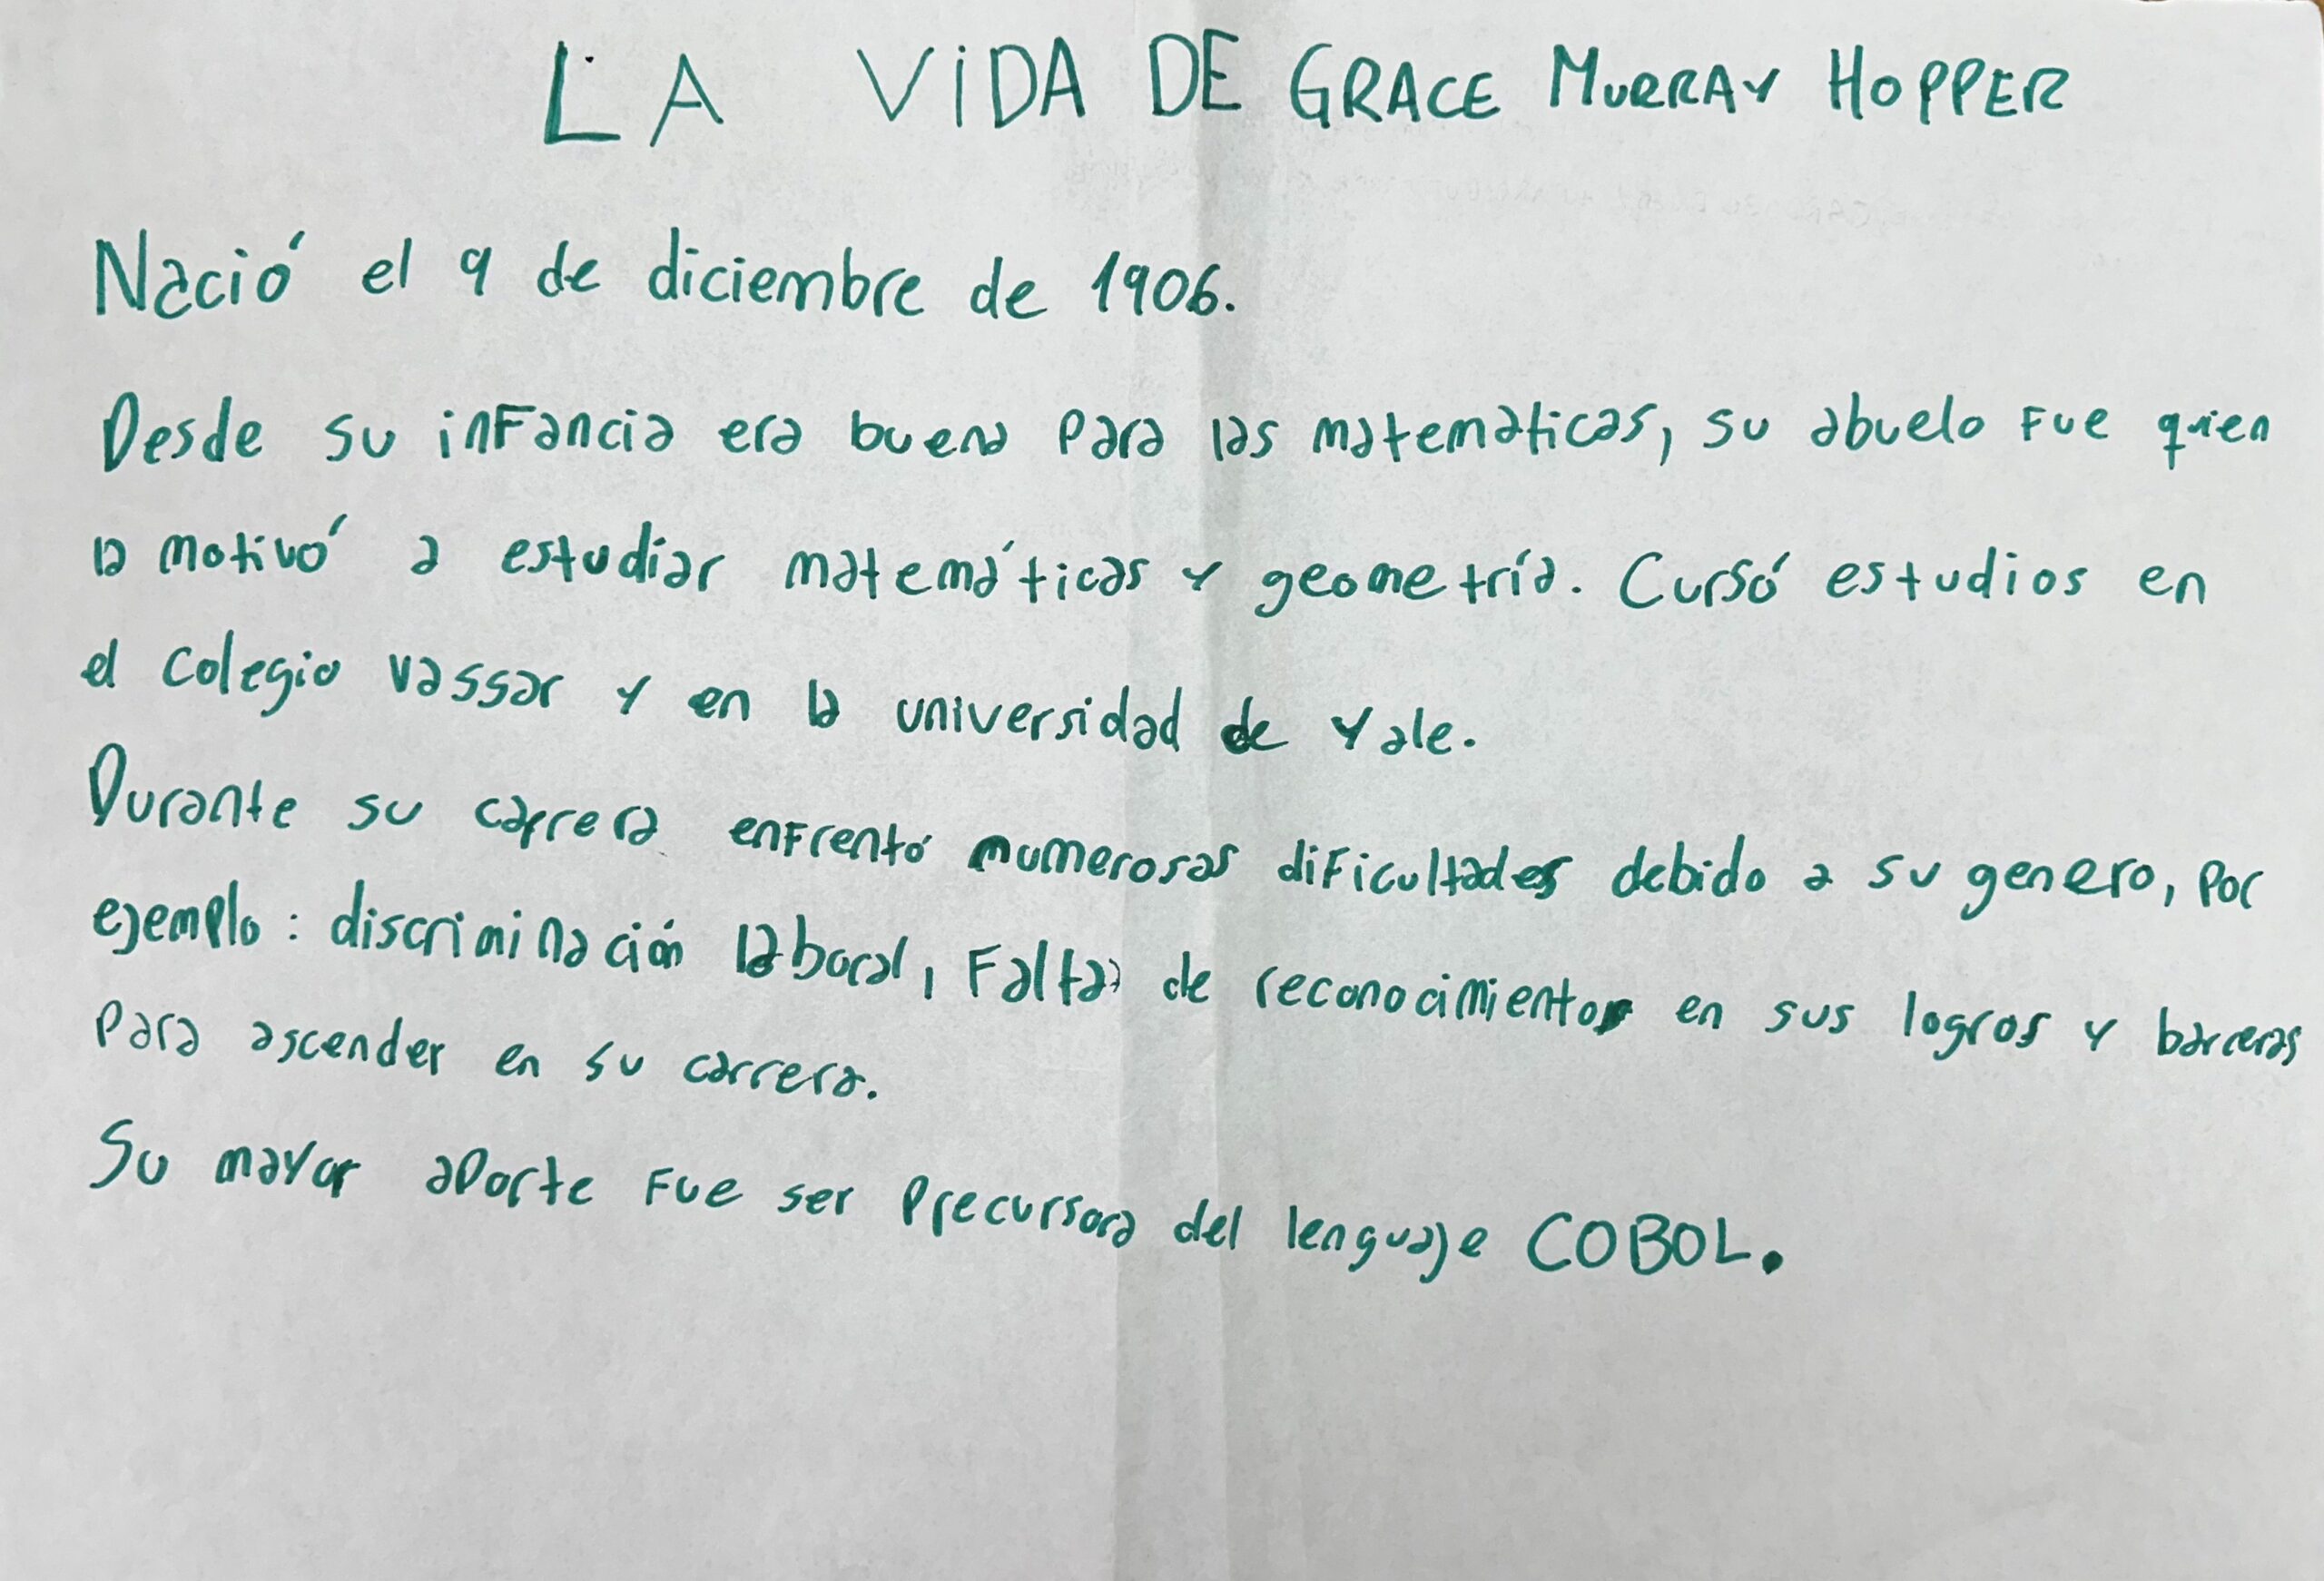 LA ViDA DE GRACE MURRAY HOPPER
Nació el 9 de diciembre de 1906.
Desde su inFancia era buena para las matemáticas, su abuelo Fue quien
la motivó a estudiar matemáticas y geometría. Cursó estudios en
el colegio vassar y en la universidad de Yale.
Durante su carrera enFrentó numerosas diFicultades debido a su genero, por
ejemplo: discriminación laboral, Falta de reconocimiento en sus logros y barreras
para ascender en su carrera.
Su mayor aporte Fue ser precursora del lenguaje COBOL.